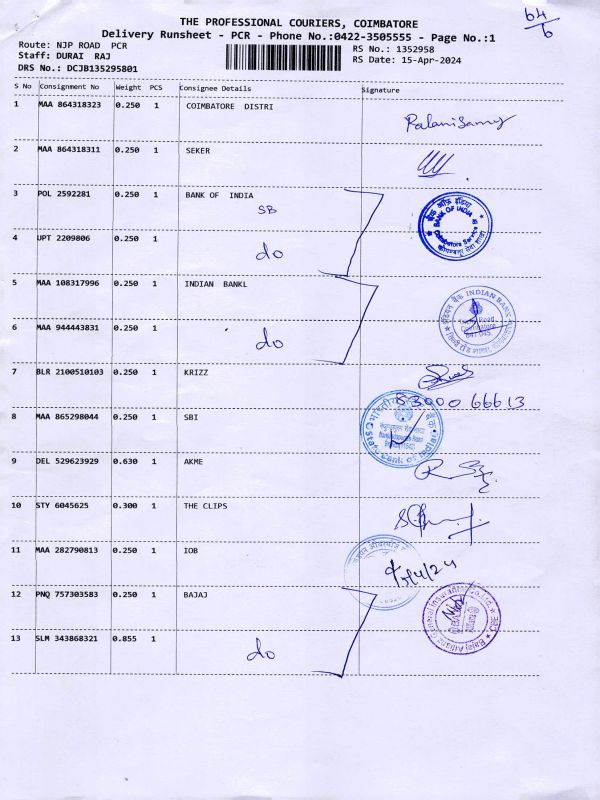 64/6
THE PROFESSIONAL COURIERS, COIMBATORE
Delivery Runsheet - PCR - Phone No.:0422-3505555 - Page No.:1
Route: NJP ROAD PCR
RS No.: 1352958
Staff: DURAI RAJ
RS Date: 15-Apr-2024
DRS No.: DCJB135295801
S No Consignment No Weight PCS Consignee Details Signature
1 MAA 864318323 0.250 1 COIMBATORE DISTRI
Palanisamy
2 MAA 864318311 0.250 1 SEKER
3 POL 2592281 0.250 1 BANK OF INDIA
SB
बैंक ऑफ इंडिया BANK OF INDIA Coimbatore Service Br
4 UPT 2209806 0.250 1
do
5 MAA 108317996 0.250 1 INDIAN BANKL
INDIAN BANK
6 MAA 944443831 0.250 1
do
7 BLR 2100510103 0.250 1 KRIZZ
83000 66613
8 MAA 865298044 0.250 1 SBI
State Bank of India
9 DEL 529623929 0.630 1 AKME
10 STY 6045625 0.300 1 THE CLIPS
11 MAA 282790813 0.250 1 IOB
12 PNQ 757303583 0.250 1 BAJAJ
Bajaj Allianz General Insurance Co. Ltd. CBE
13 SLM 343868321 0.855 1
do